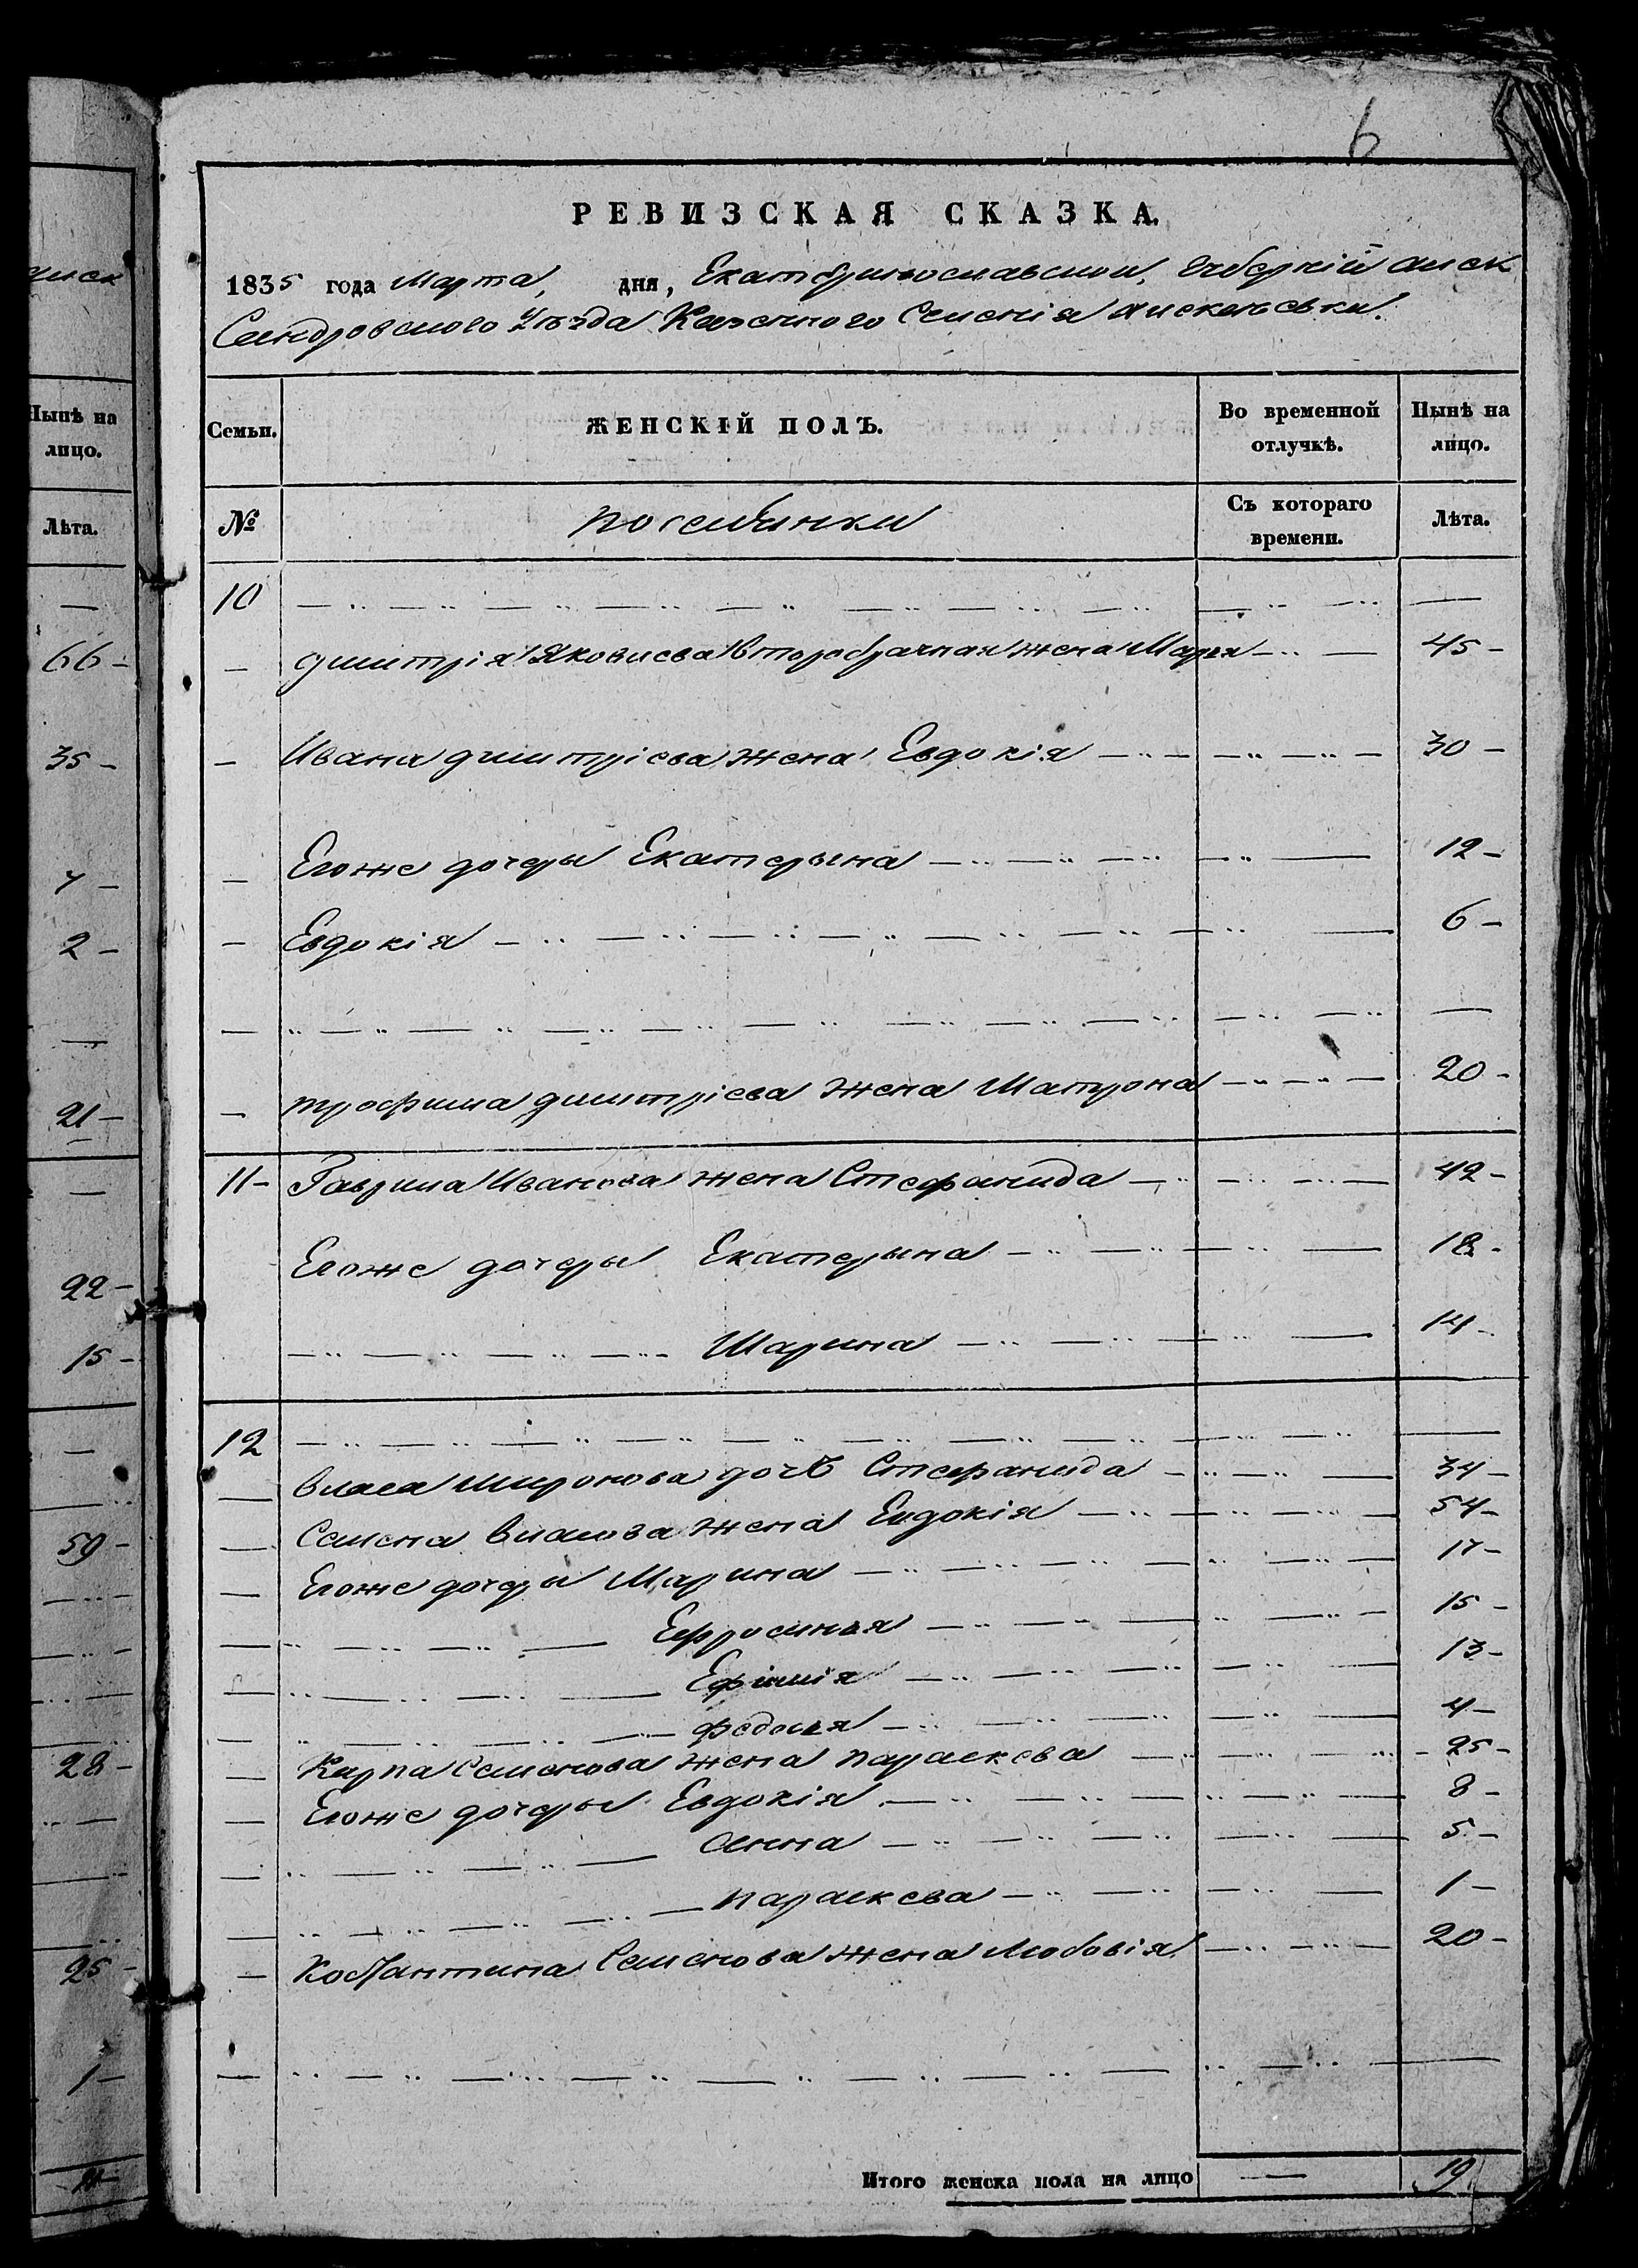 6
РЕВИЗСКАЯ СКАЗКА.
1835 года Марта, дня, Екатеринославской, Губерніи Алек
Сандровского Уезда Казенного Селенія
Семьи. ЖЕНСКІЙ ПОЛЪ. Во временной отлучкѣ. Нынѣ на лицо.
№ Съ котораго времени. Лѣта.
10
Дмитрія Яковлева Второбрачная жена Марья 45
Ивана Дмитріева жена Евдокія 30
Егоже дочеры Екатерына 12
Евдокія 6
Трофима Дмитріева жена Матрона 20
11 Гаврила Иванова жена Стефанида 42
Егоже дочеры Екатерына 18
Марина 14
12
Власа Миронова дочь Стефанида 34
Семена Власова жена Евдокія 54
Егоже дочеры Марина 17
Ефросинья 15
Ефимія 13
Федосья 4
Карпа Семенова жена Параскева 25
Егоже дочеры Евдокія 8
Анна 5
Параскева 1
Костантина Семенова жена Любовія 20
Итого женска пола на лицо 19
Нынѣ на
лицо.
Лѣта.
66
35
7
2
21
22
15
59
28
25
1